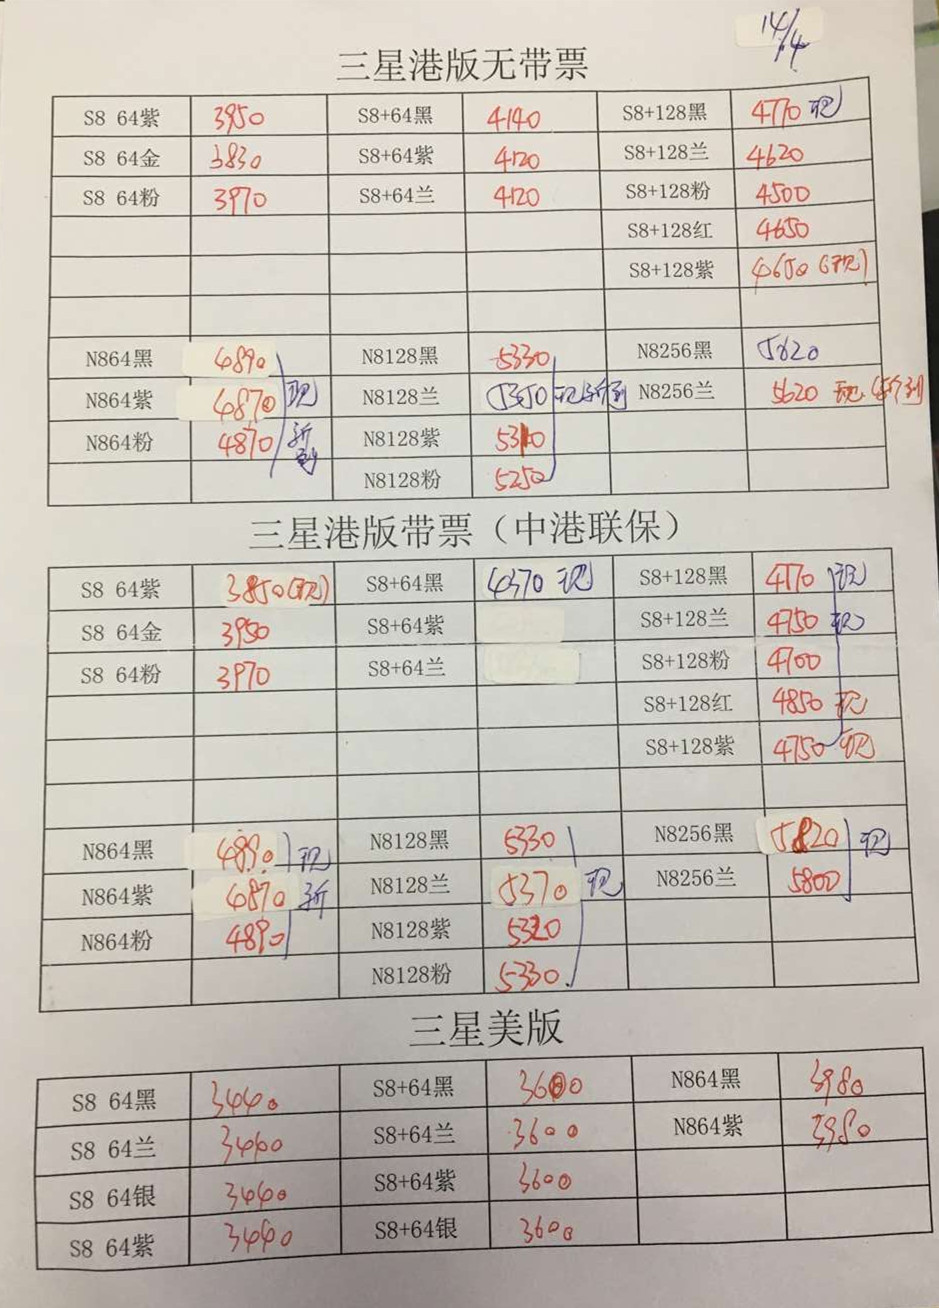 14/4
三星港版无带票
S8 64紫 3950 S8+64黑 4140 S8+128黑 4770 现
S8 64金 3830 S8+64紫 4120 S8+128兰 4620
S8 64粉 3970 S8+64兰 4120 S8+128粉 4500
S8+128红 4650
S8+128紫 4650 (现)
N864黑 4890 N8128黑 5330 N8256黑 5620
N864紫 4870 现 N8128兰 5350 现 新到 N8256兰 5620 现 新到
N864粉 4870 新到 N8128紫 5310
N8128粉 5250
三星港版带票（中港联保）
S8 64紫 3850 (现) S8+64黑 4370 现 S8+128黑 4770 现
S8 64金 3950 S8+64紫 S8+128兰 4750 现
S8 64粉 3970 S8+64兰 S8+128粉 4700
S8+128红 4850 现
S8+128紫 4750 现
N864黑 4890 现 N8128黑 5330 N8256黑 5820 现
N864紫 4870 新 N8128兰 5370 现 N8256兰 5800
N864粉 4890 N8128紫 5320
N8128粉 5330
三星美版
S8 64黑 3440 S8+64黑 3600 N864黑 3980
S8 64兰 3440 S8+64兰 3600 N864紫 3980
S8 64银 3440 S8+64紫 3600
S8 64紫 3440 S8+64银 3600